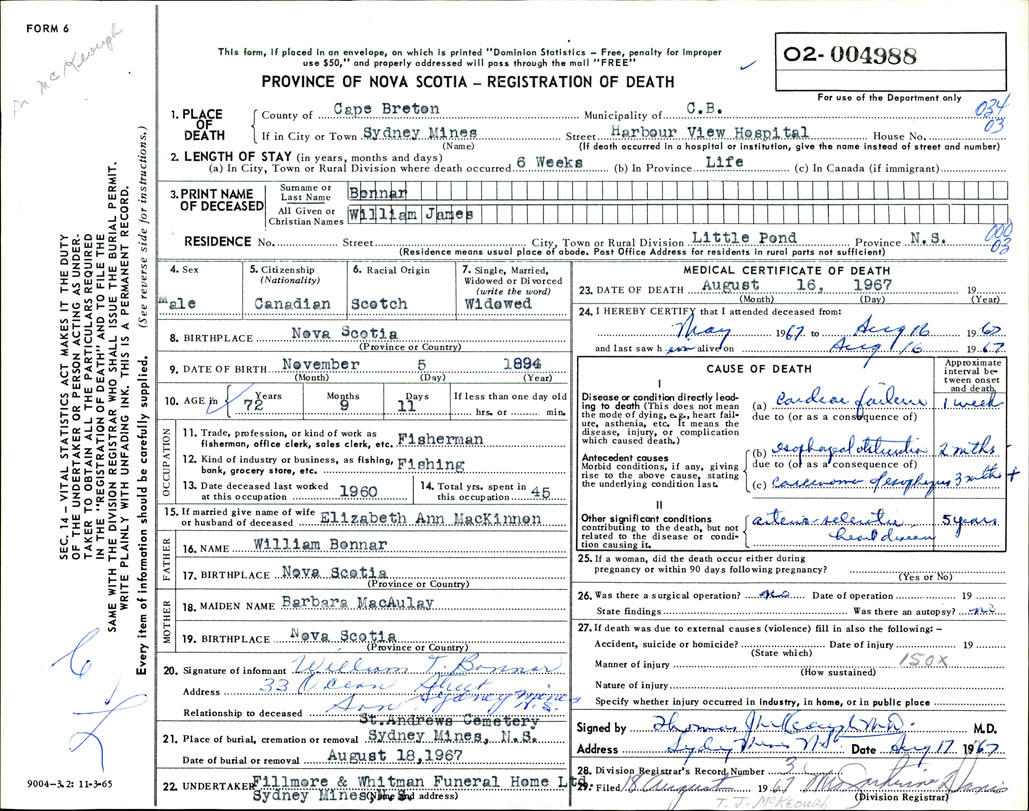 FORM 6
Mc Keough
This form, if placed in an envelope, on which is printed "Dominion Statistics – Free, penalty for improper
use $50," and properly addressed will pass through the mail "FREE"
PROVINCE OF NOVA SCOTIA – REGISTRATION OF DEATH
02-004988
For use of the Department only
034
03
1. PLACE OF DEATH
County of Cape Breton Municipality of C.B.
If in City or Town Sydney Mines Street Harbour View Hospital House No.
(Name) (If death occurred in a hospital or institution, give the name instead of street and number)
2. LENGTH OF STAY (in years, months and days)
(a) In City, Town or Rural Division where death occurred 6 Weeks (b) In Province Life (c) In Canada (if immigrant)
3. PRINT NAME OF DECEASED
Surname or Last Name Bonnar
All Given or Christian Names William James
000
03
RESIDENCE No. Street City, Town or Rural Division Little Pond Province N.S.
(Residence means usual place of abode. Post Office Address for residents in rural parts not sufficient)
4. Sex
Male
5. Citizenship
(Nationality)
Canadian
6. Racial Origin
Scotch
7. Single, Married,
Widowed or Divorced
(write the word)
Widowed
8. BIRTHPLACE Nova Scotia
(Province or Country)
9. DATE OF BIRTH November 5 1894
(Month) (Day) (Year)
10. AGE in Years Months Days If less than one day old
72 9 11 hrs. or min.
OCCUPATION
11. Trade, profession, or kind of work as
fisherman, office clerk, sales clerk, etc. Fisherman
12. Kind of industry or business, as fishing,
bank, grocery store, etc. Fishing
13. Date deceased last worked
at this occupation 1960
14. Total yrs. spent in
this occupation 45
15. If married give name of wife
or husband of deceased Elizabeth Ann MacKinnon
FATHER
16. NAME William Bonnar
17. BIRTHPLACE Nova Scotia
(Province or Country)
MOTHER
18. MAIDEN NAME Barbara MacAulay
19. BIRTHPLACE Nova Scotia
(Province or Country)
20. Signature of informant William J. Bonnar
Address 33 Ocean Street Sydney Mines N.S.
Relationship to deceased Son
St. Andrews Cemetery
21. Place of burial, cremation or removal Sydney Mines, N.S.
Date of burial or removal August 18, 1967
22. UNDERTAKER Fillmore & Whitman Funeral Home Ltd
Sydney Mines N.S.
(Name and address)
MEDICAL CERTIFICATE OF DEATH
23. DATE OF DEATH August 16, 1967 19
(Month) (Day) (Year)
24. I HEREBY CERTIFY that I attended deceased from:
May 1967 to Aug 16 1967
and last saw him alive on Aug 16 1967
CAUSE OF DEATH
Approximate
interval be-
tween onset
and death
I
Disease or condition directly lead-
ing to death (This does not mean
the mode of dying, e.g., heart fail-
ure, asthenia, etc. It means the
disease, injury, or complication
which caused death.)
(a) cardiac failure 1 week
due to (or as a consequence of)
Antecedent causes
Morbid conditions, if any, giving
rise to the above cause, stating
the underlying condition last.
(b) esophageal obstruction 2 mths
due to (or as a consequence of)
(c) carcinoma of esophagus 3 mths +
II
Other significant conditions
contributing to the death, but not
related to the disease or condi-
tion causing it.
arterio-sclerotic 5 years
heart disease
25. If a woman, did the death occur either during
pregnancy or within 90 days following pregnancy?
(Yes or No)
26. Was there a surgical operation? no Date of operation 19
State findings Was there an autopsy? no
27. If death was due to external causes (violence) fill in also the following: –
Accident, suicide or homicide? Date of injury 19
(State which)
150X
Manner of injury
(How sustained)
Nature of injury
Specify whether injury occurred in industry, in home, or in public place
Signed by Thomas J McKeough M.D. M.D.
Address Sydney Mines N.S. Date Aug 17 1967
28. Division Registrar's Record Number 3
29. Filed 18 August 1967
(Division Registrar)
T. J. McKEOUGH
SEC. 14 – VITAL STATISTICS ACT MAKES IT THE DUTY
OF THE UNDERTAKER OR PERSON ACTING AS UNDER-
TAKER TO OBTAIN ALL THE PARTICULARS REQUIRED
IN THE "REGISTRATION OF DEATH" AND TO FILE THE
SAME WITH THE DIVISION REGISTRAR WHO SHALL ISSUE THE BURIAL PERMIT.
WRITE PLAINLY WITH UNFADING INK. THIS IS A PERMANENT RECORD.
Every item of information should be carefully supplied. (See reverse side for instructions.)
9004–3.2: 11-3-65